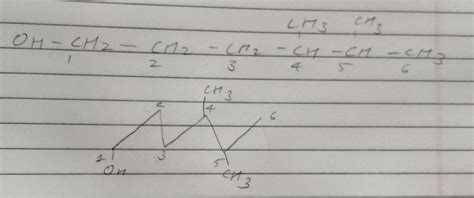 CH3 CH3
OH-CH2-CH2-CH2-CH-CH-CH3
1 2 3 4 5 6
CH3
2 4 6
1 3 5
OH CH3